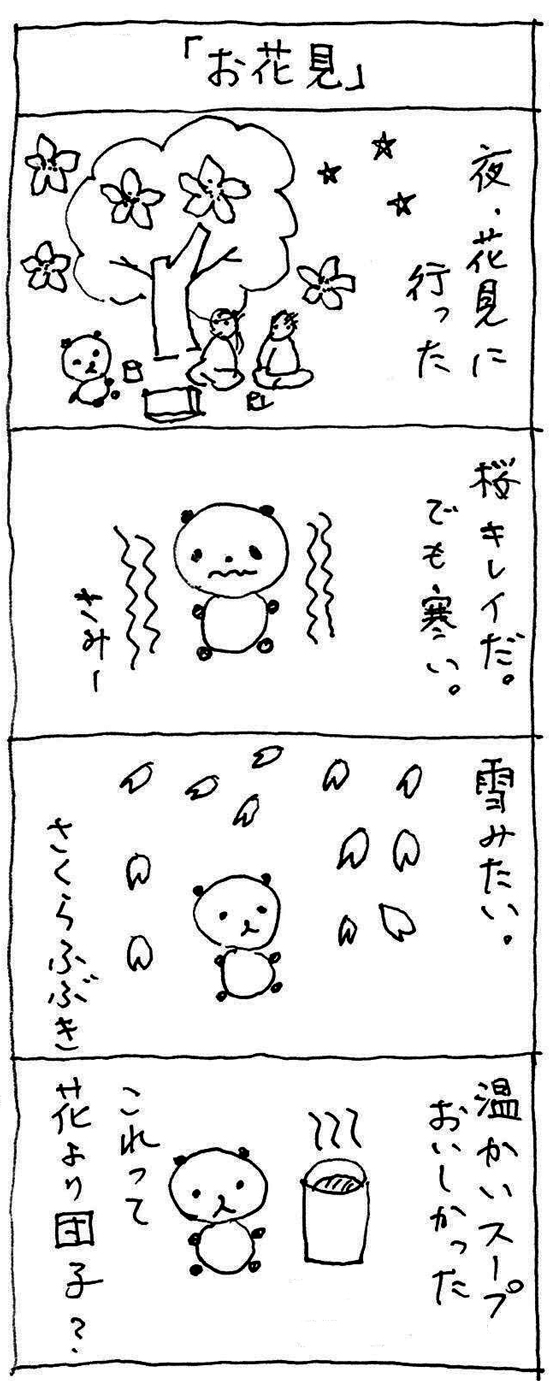 「お花見」
夜、花見に
行った
桜キレイだ。
でも寒い。
さみー
雪みたい。
さくらふぶき
温かいスープ
おいしかった
これって
花より団子?